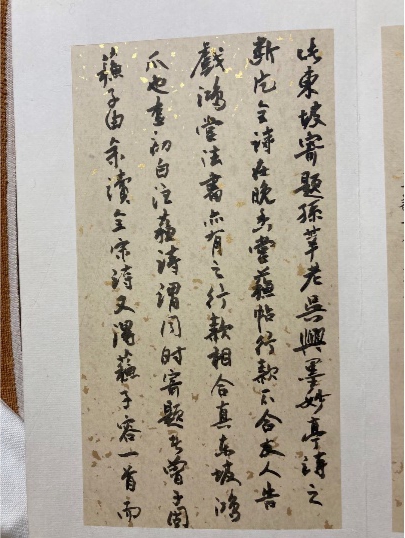 此東坡寄題孫莘老吳興墨妙亭詩之
斷片全詩在晚香堂蘇帖行款不合友人告
戲鴻堂法書亦有之行款相合真東坡鴻
爪也查初白注蘇詩謂同時寄題者曾子固
蘇子由余讀全宋詩又得蘇子容一首而